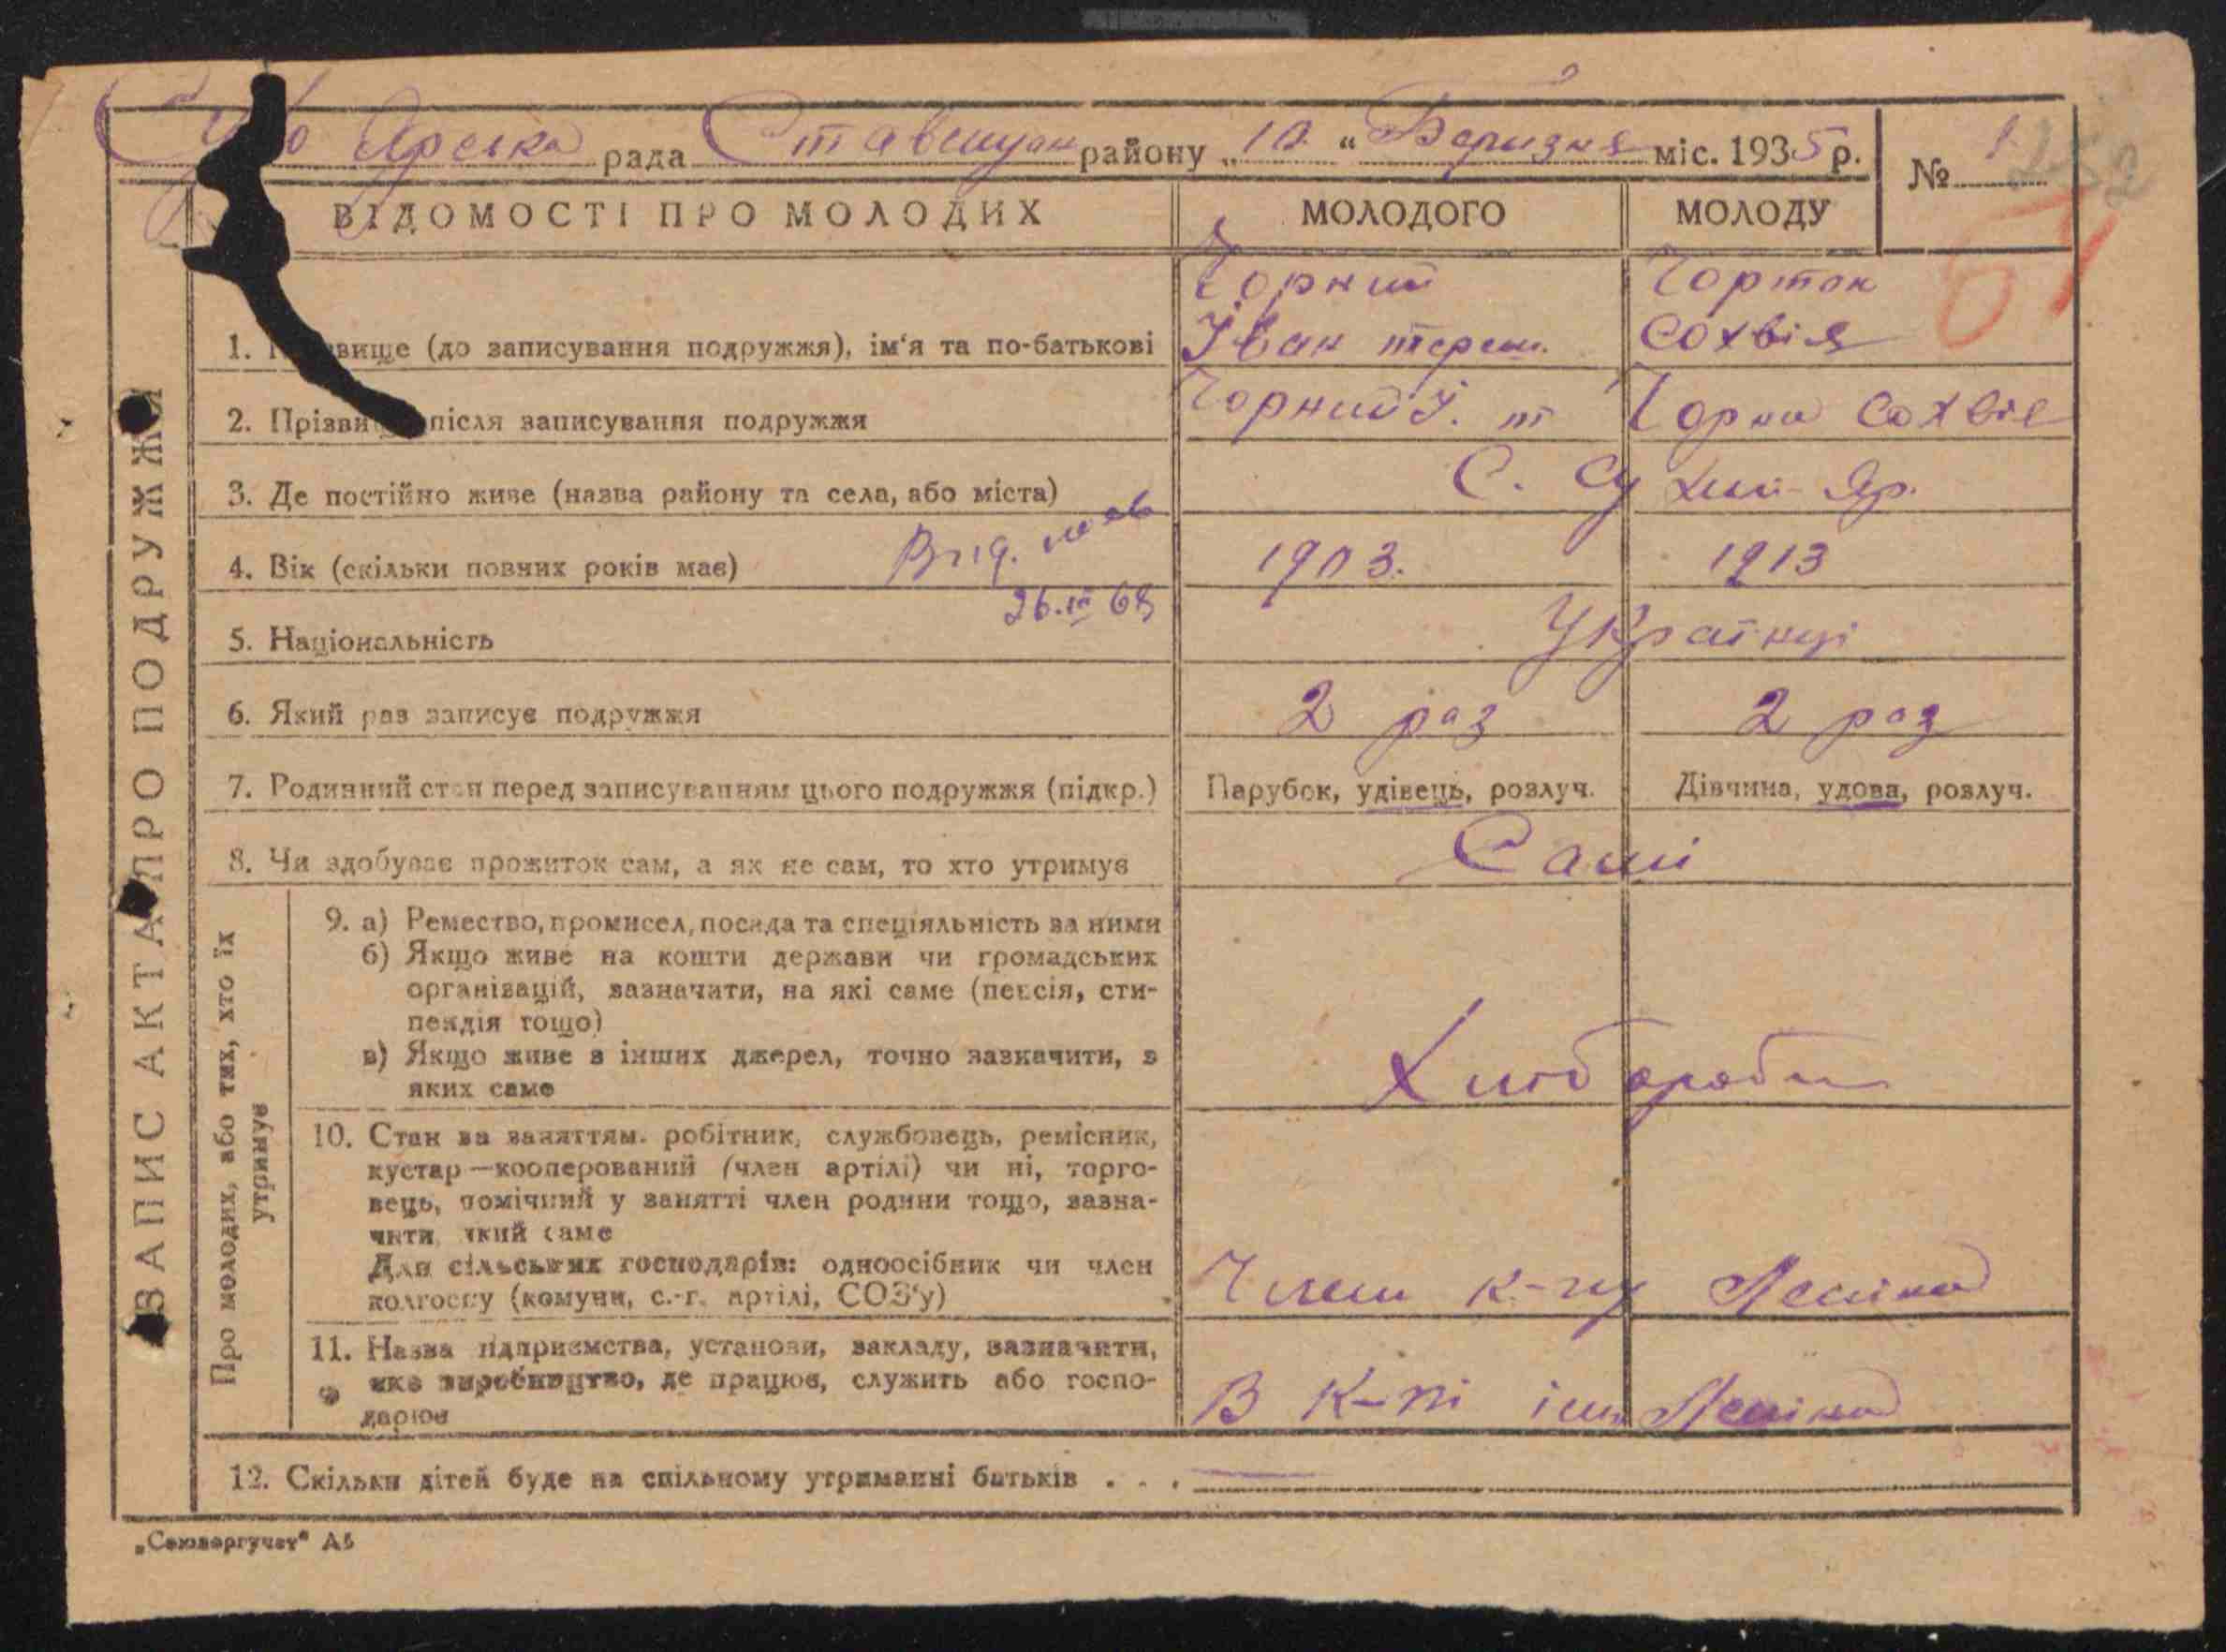 Ярська рада Ставищан району „10“ Березня міс. 1935 р.
№ 1
ВІДОМОСТІ ПРО МОЛОДИХ МОЛОДОГО МОЛОДУ
ЗАПИС АКТА ПРО ПОДРУЖЖЯ
Чорний
Іван тереш.
Сохвія
1. вище (до записування подружжя), ім'я та по-батькові
2. Прізви після записування подружжя Чорний І. т Чорна Сохвіє
3. Де постійно живе (назва району та села, або міста) С. Сухий-Яр.
4. Вік (скільки повних років має) 1903. 1913
26.III 68
5. Національність Українці
6. Який раз записує подружжя 2 раз 2 раз
7. Родинний стан перед записуванням цього подружжя (підкр.) Парубок, удівець, розлуч. Дівчина, удова, розлуч.
8. Чи здобуває прожиток сам, а як не сам, то хто утримує Самі
Про молодих, або тих, хто їх
утримує
9. а) Ремество, промисел, посада та спеціяльність за ними
б) Якщо живе на кошти держави чи громадських
організацій, зазначити, на які саме (пенсія, сти-
пендія тощо)
в) Якщо живе з інших джерел, точно зазначити, з
яких саме
Хліборобы
10. Стан за заняттям. робітник, службовець, ремісник,
кустар—кооперований (член артілі) чи ні, торго-
вець, помічний у занятті член родини тощо, зазна-
чити який саме
Для сільських господарів: одноосібник чи член
колгоспу (комуни, с.-г. артілі, СОЗ'у)
Члени к-пу Леніна
11. Назва підприємства, установи, закладу, зазначити,
яке виробництво, де працює, служить або госпо-
дарює
В К-пі ім. Леніна
12. Скільки дітей буде на спільному утриманні батьків . . .